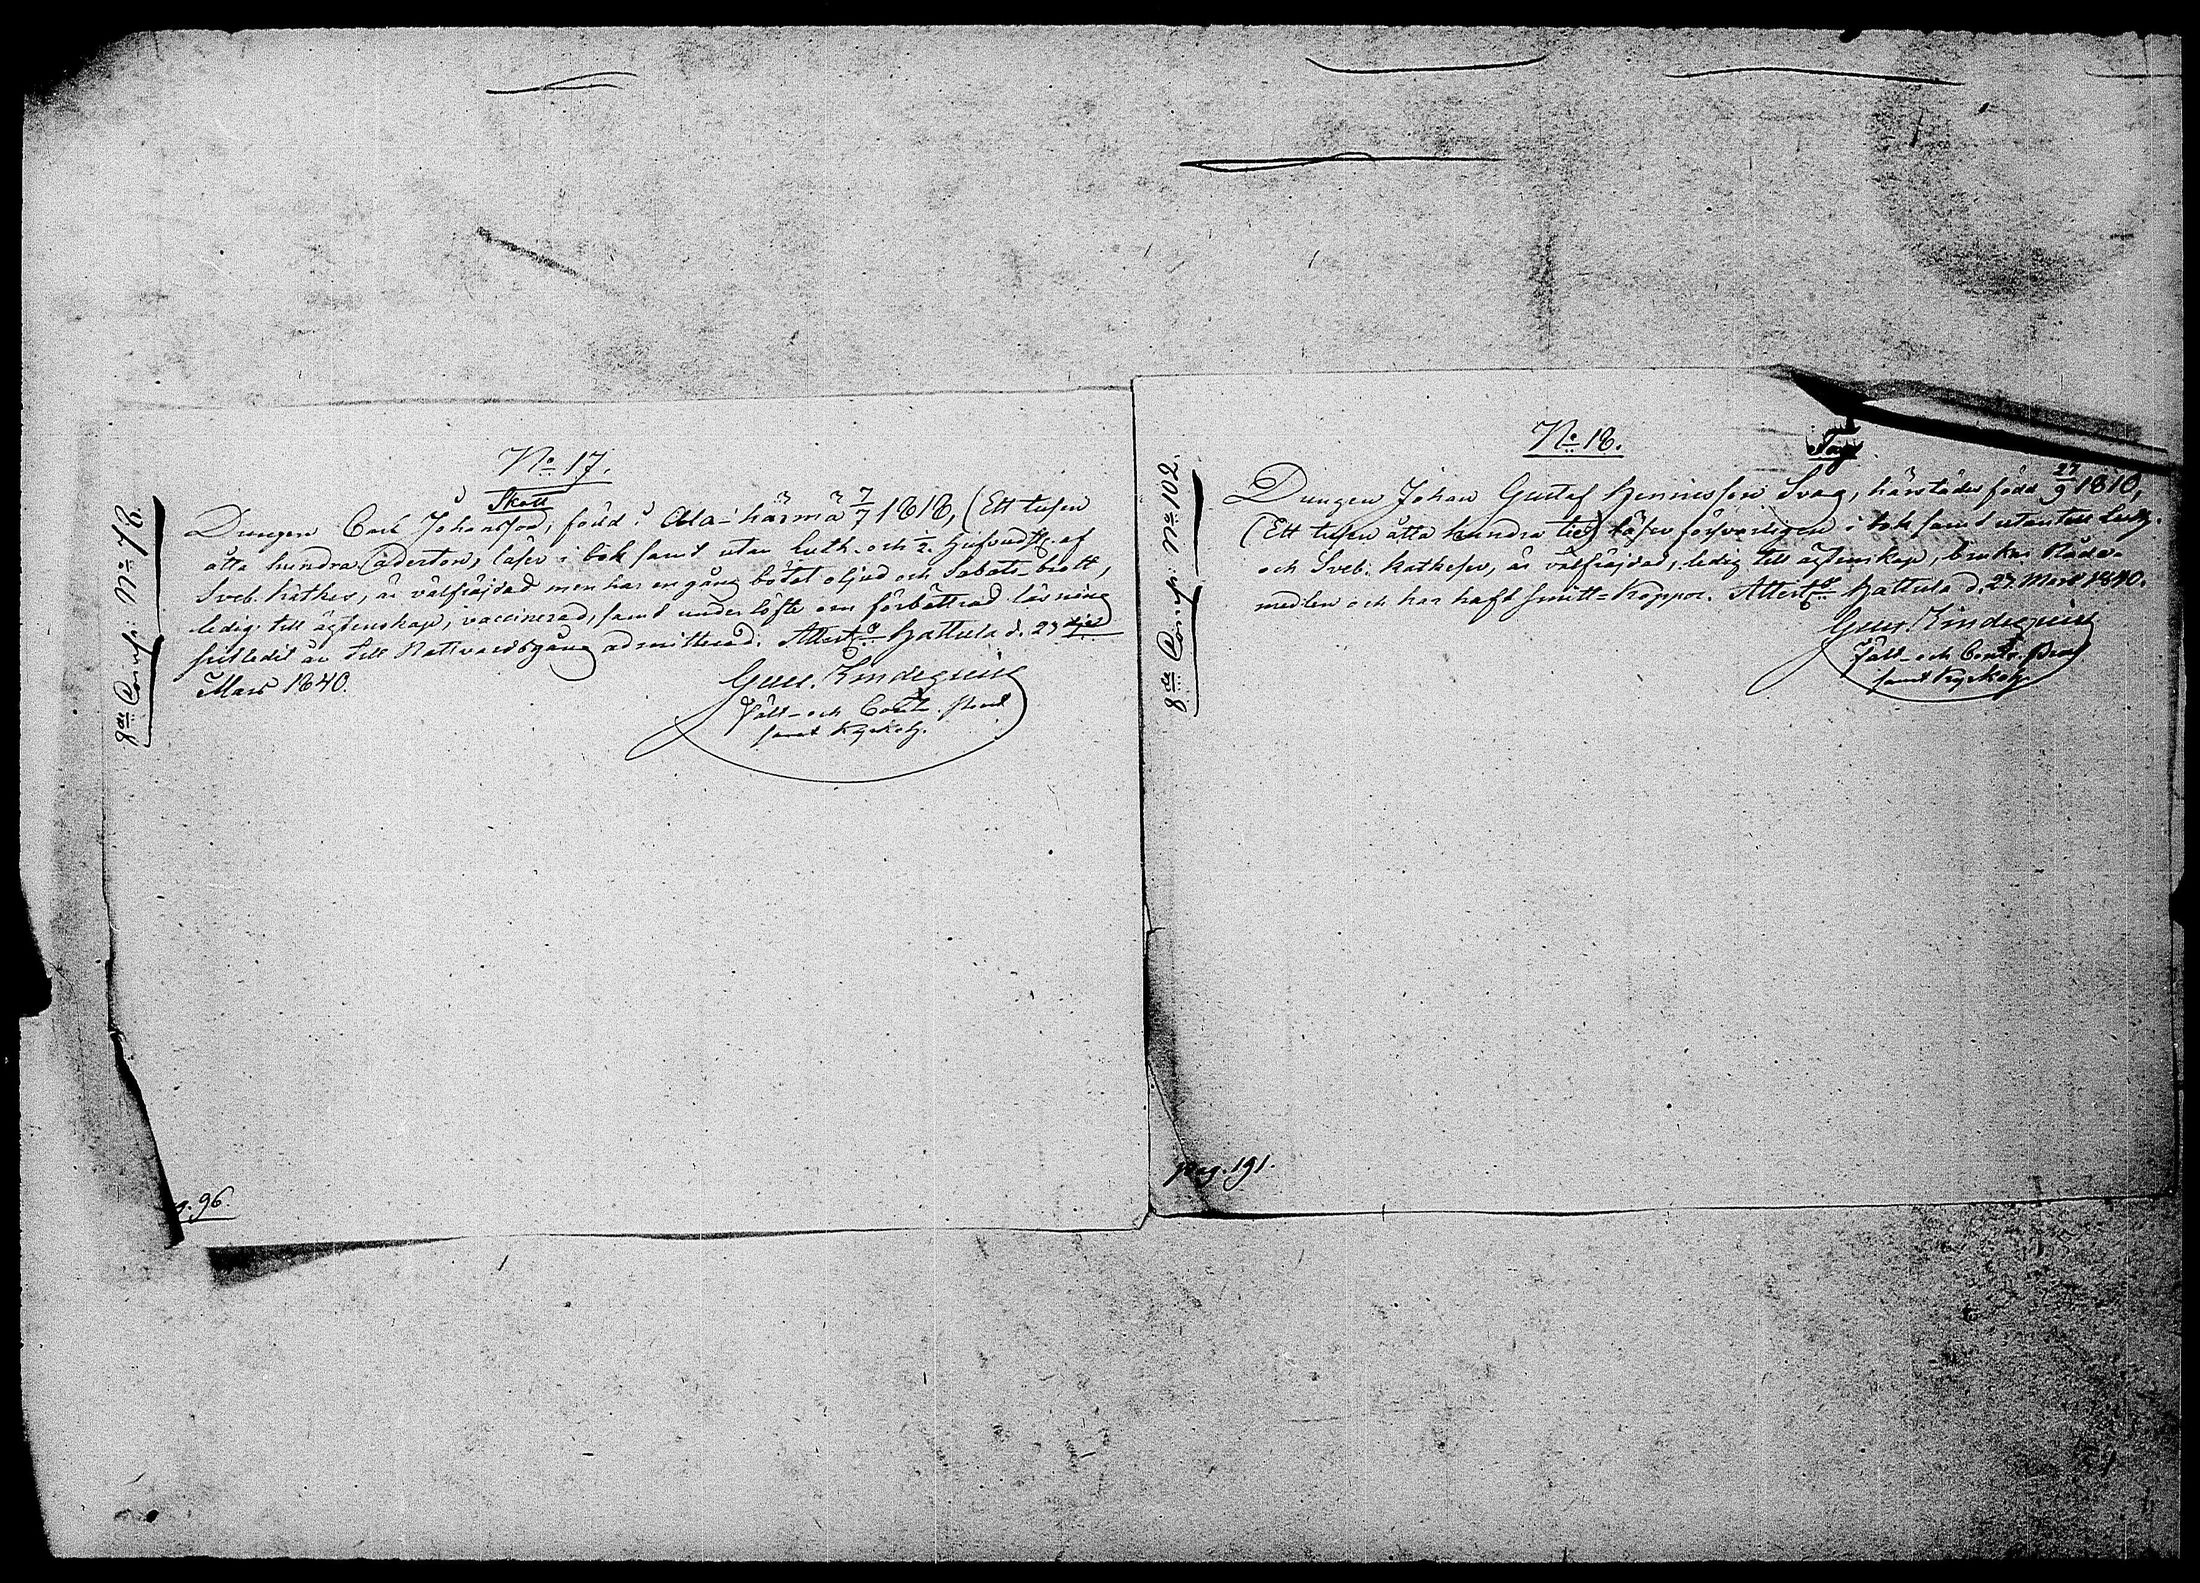 8de Comp: No 78.
No 17.
Skott
Drengen Carl Johansson, född i Ala-härmä 7/7 1818, (Ett tusen
åtta hundra aderton) läser i bok samt utan Luth. och 1/2 Hufvudst. af
Sveb. Kathes, är välfräjdad men har en gång bötat oljud och Sabats-brott,
ledig till ägtenskap, vaccinerad, samt under löfte om förbättrad läsning
är till Nattvardsgång admitterad. Attest. Hattula d. 27
Mars 1840.
Gust. Lindequist
Fält- och Cont. Pred
samt Kyrkoh.
p. 96.
8de Comp: No 102.
No 18.
Tag
Drengen Johan Gustaf Henriksson Svag, härstädes född 27/9 1810,
(Ett tusen åtta hundra tie) läser försvarligen i bok samt utantill Luth.
och Sveb. Katheser, är välfräjdad, ledig till ägtenskap, brukar Nåda-
medlen och har haft smitt-koppor. Attest. Hattula d. 27 Mars 1840.
Gust. Lindequist
Fält- och Cont. Pred
samt Kyrkoh.
pag. 191.